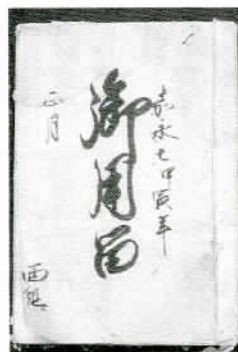 嘉永七甲寅年
御用留
正月
西組